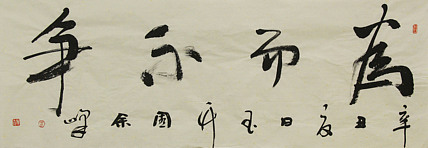 為而不爭
辛丑夏日玉軒國余峰